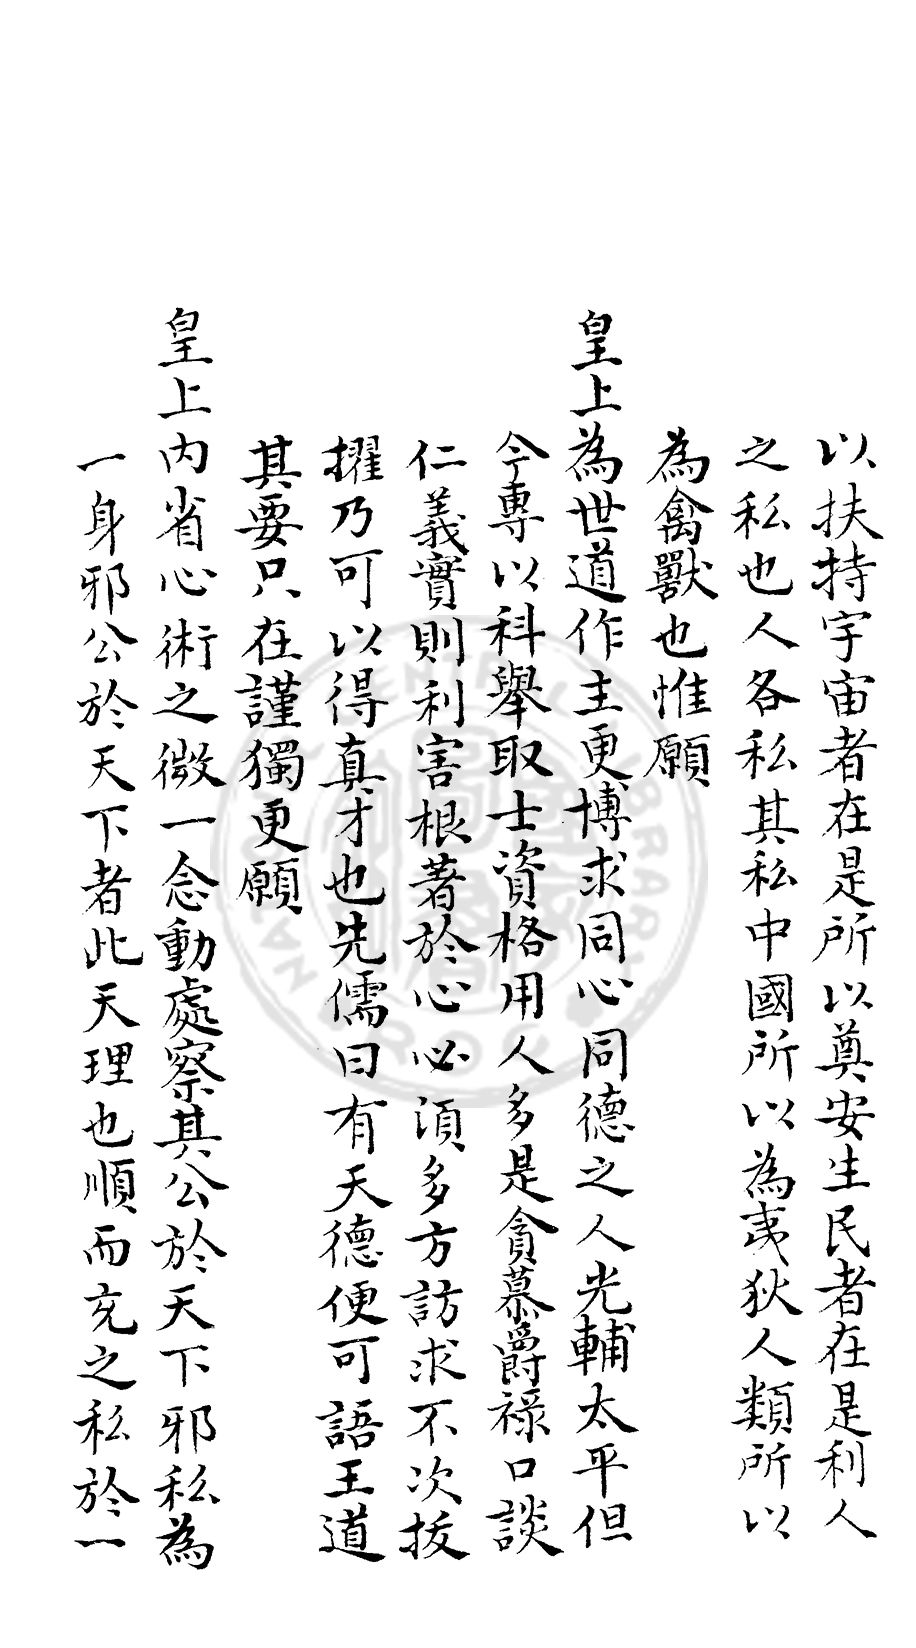 以扶持宇宙者在是所以奠安生民者在是利人
之私也人各私其私中國所以為夷狄人類所以
為禽獸也惟願
皇上為世道作主更博求同心同德之人光輔太平但
今專以科舉取士資格用人多是貪慕爵祿口談
仁義實則利害根著於心必須多方訪求不次拔
擢乃可以得真才也先儒曰有天德便可語王道
其要只在謹獨更願
皇上內省心術之微一念動處察其公於天下邪私為
一身邪公於天下者此天理也順而充之私於一
CENTRAL LIBRARY
NATI
R.O.C